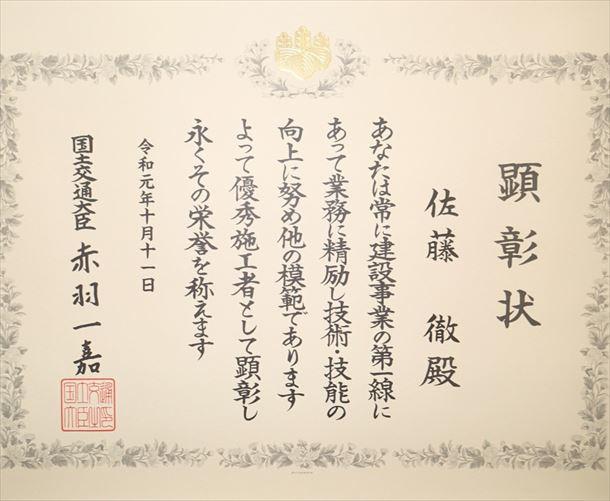 顕彰状
佐藤 徹殿
あなたは常に建設事業の第一線に
あって業務に精励し技術・技能の
向上に努め他の模範であります
よって優秀施工者として顕彰し
永くその栄誉を称えます
令和元年十月十一日
国土交通大臣 赤羽一嘉